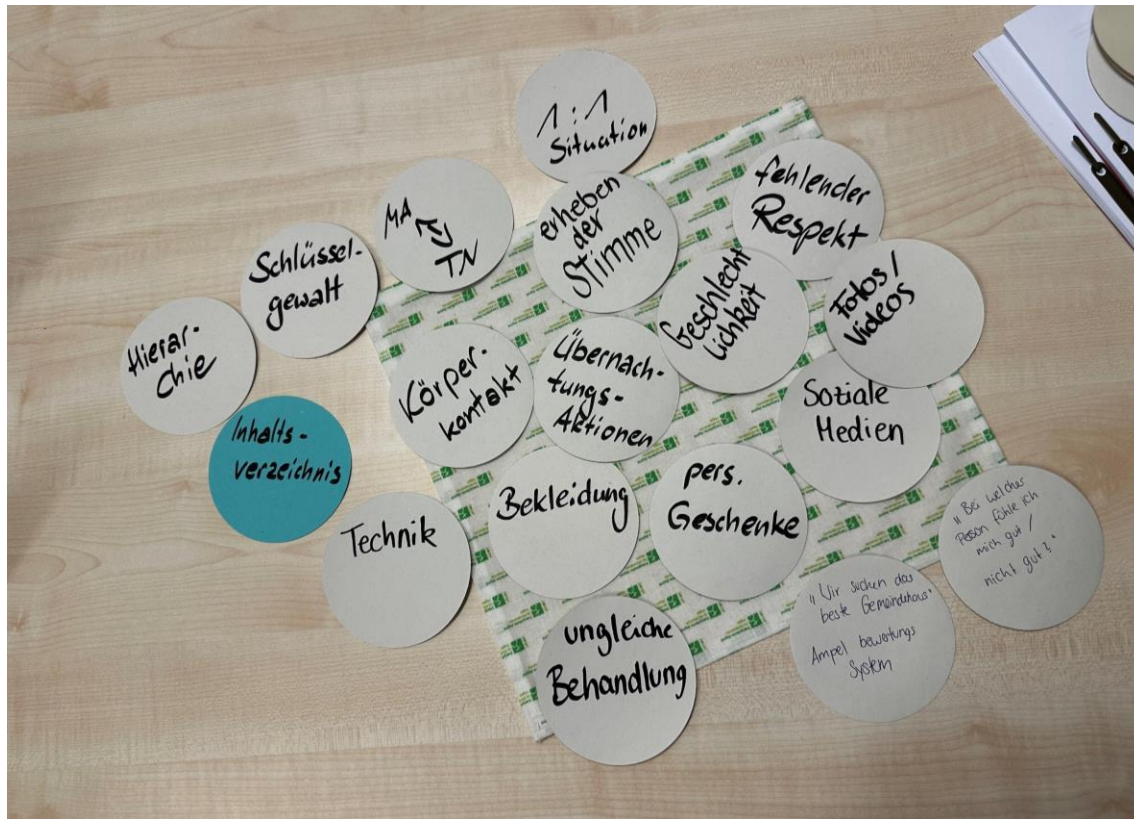 1:1
Situation
MA
TN
erheben
der
Stimme
fehlender
Respekt
Schlüssel-
gewalt
Geschlecht
lichkeit
Fotos /
Videos
Hierar-
chie
Körper-
kontakt
Übernach-
tungs-
Aktionen
Soziale
Medien
Inhalts-
verzeichnis
Technik
Bekleidung
pers.
Geschenke
"Bei welcher
Person fühle ich
mich gut /
nicht gut?"
"Wir suchen das
beste Gemeindehaus"
Ampel bewertungs
System
ungleiche
Behandlung